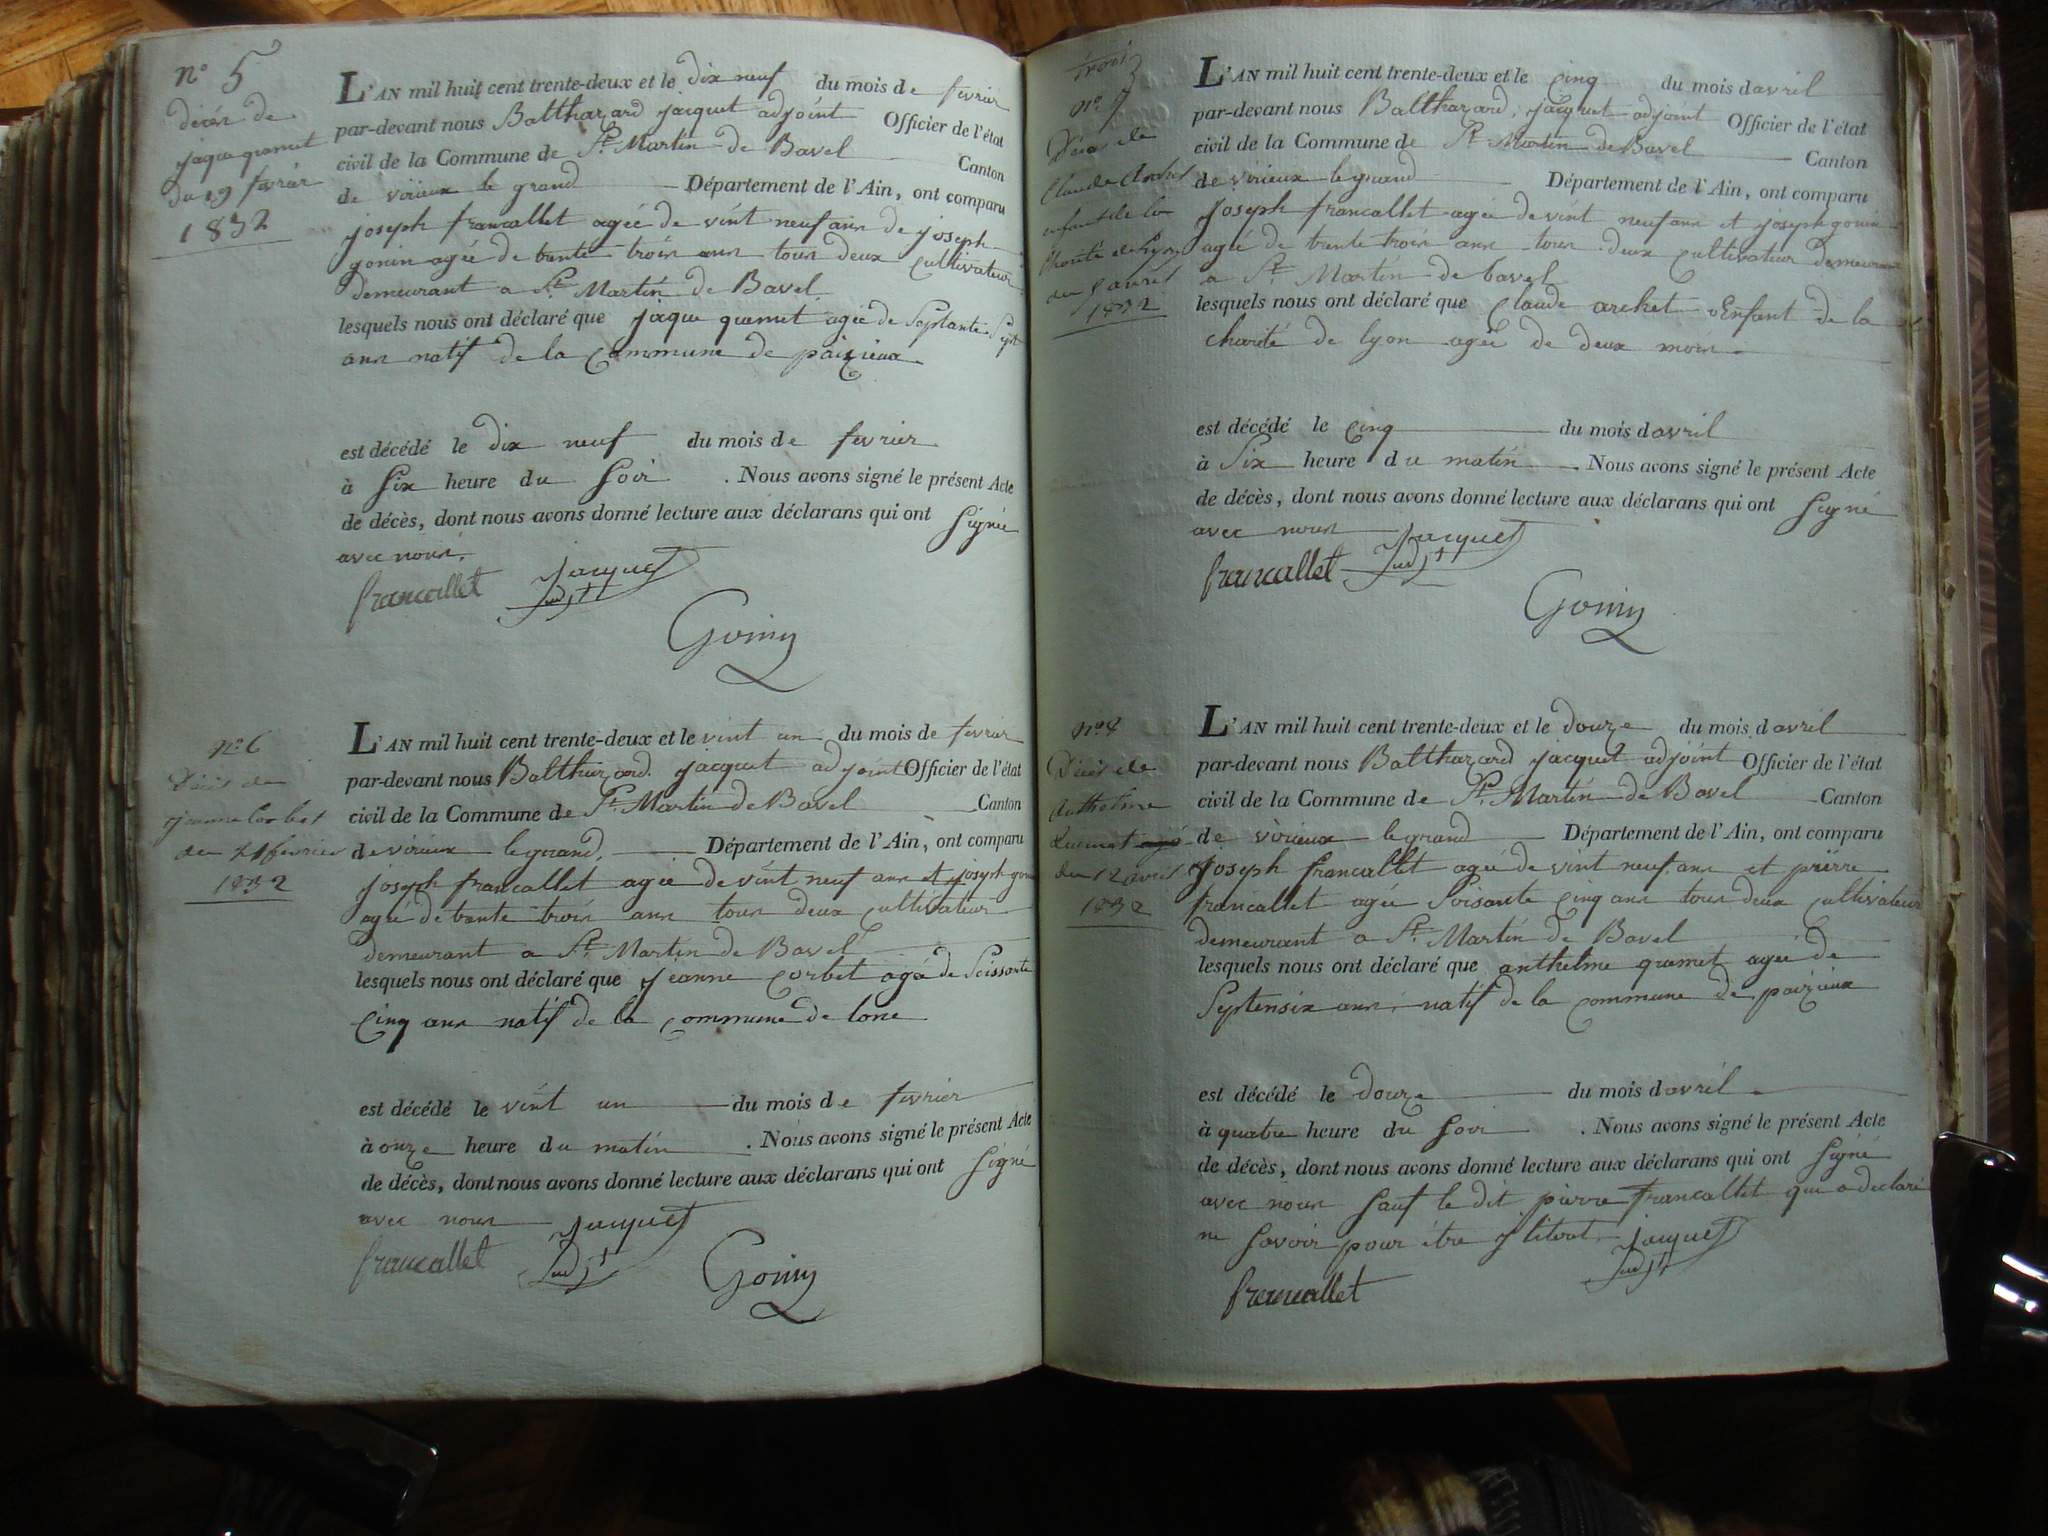 n° 5
décés de
jaque gramet
du 19 fevrier
1832
L'AN mil huit cent trente-deux et le dix neuf du mois de fevrier
par-devant nous Balthazard jacquet adjoint Officier de l'état
civil de la Commune de St. Martin de Bavel Canton
de virieux le grand Département de l'Ain, ont comparu
joseph francallet agée de vint neuf ans de joseph
gonin agée de trente trois ans tous deux cultivateur
demeurant a St. Martin de Bavel
lesquels nous ont déclaré que jaque gramet agée de Septante Sept
ans natif de la Commune de paizieux
est décédé le dix neuf du mois de fevrier
à Six heure du Soir . Nous avons signé le présent Acte
de décès, dont nous avons donné lecture aux déclarans qui ont Signé
avec nous.
francallet Jacquet
adjt
Gonin
n° 6
Décés de
jeanne Corbet
du 21 fevrier
1832
L'AN mil huit cent trente-deux et le vint un du mois de fevrier
par-devant nous Balthazard jacquet adjoint Officier de l'état
civil de la Commune de St. Martin de Bavel Canton
de virieux le grand. Département de l'Ain, ont comparu
joseph francallet agée de vint neuf ans et joseph gonin
agée de trente trois ans tous deux cultivateur
demeurant a St. Martin de Bavel
lesquels nous ont déclaré que jeanne Corbet agé de Soissante
Cinq ans natif de la commune de lone
est décédé le vint un du mois de fevrier
à onze heure du matin . Nous avons signé le présent Acte
de décès, dont nous avons donné lecture aux déclarans qui ont Signé
avec nous Jacquet
francallet adjt Gonin
trois
n° 7
Décés de
Claude
enfant de la
charité de Lyon
du 5 avril
1832
L'AN mil huit cent trente-deux et le Cinq du mois davril
par-devant nous Balthazard jacquet adjoint Officier de l'état
civil de la Commune de St. Martin de Bavel Canton
de virieux le grand Département de l'Ain, ont comparu
Joseph francallet agée de vint neuf ans et joseph gonin
agée de trente trois ans tous deux cultivateur demeurant
a St. Martin de bavel
lesquels nous ont déclaré que Claude archet Enfant de la
charité de lyon agée de deux mois
est décédé le Cinq du mois davril
à Six heure du matin . Nous avons signé le présent Acte
de décès, dont nous avons donné lecture aux déclarans qui ont Signé
avec nous Jacquet
francallet adjt
Gonin
n° 8
Décés de
Anthelme
gramet
du 12 avril
1832
L'AN mil huit cent trente-deux et le douze du mois davril
par-devant nous Balthazard jacquet adjoint Officier de l'état
civil de la Commune de St. Martin de Bavel Canton
de virieux le grand Département de l'Ain, ont comparu
Joseph francallet agée de vint neuf ans et pierre
francallet agée Soisante Cinq ans tous deux cultivateur
demeurant a St. Martin de Bavel
lesquels nous ont déclaré que anthelme gramet agée de
Septensix ans natif de la commune de paizieux
est décédé le douze du mois davril
à quatre heure du Soir . Nous avons signé le présent Acte
de décès, dont nous avons donné lecture aux déclarans qui ont Signé
avec nous Sauf le dit pierre francallet qui a declaré
ne Savoir pour être Jacquet
adjt
francallet